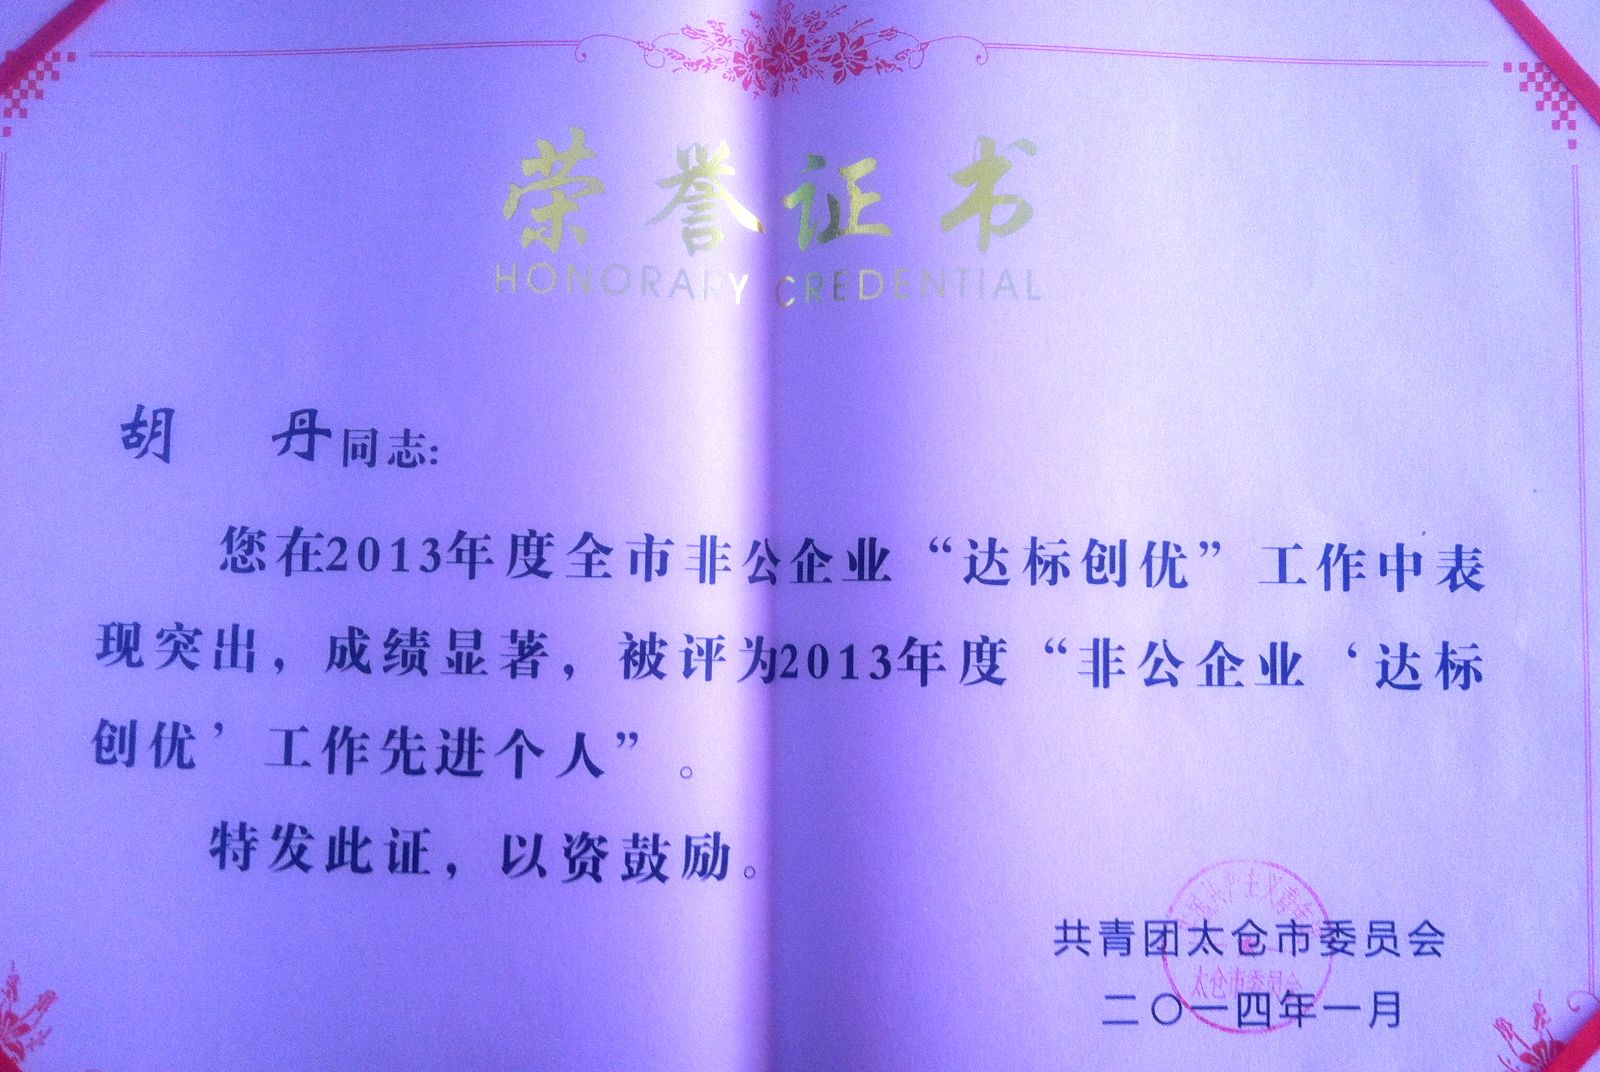 荣誉证书
HONORARY CREDENTIAL
胡 丹同志:
您在2013年度全市非公企业“达标创优”工作中表
现突出，成绩显著，被评为2013年度“非公企业‘达标
创优’工作先进个人”。
特发此证，以资鼓励。
共青团太仓市委员会
二〇一四年一月
太仓市委员会